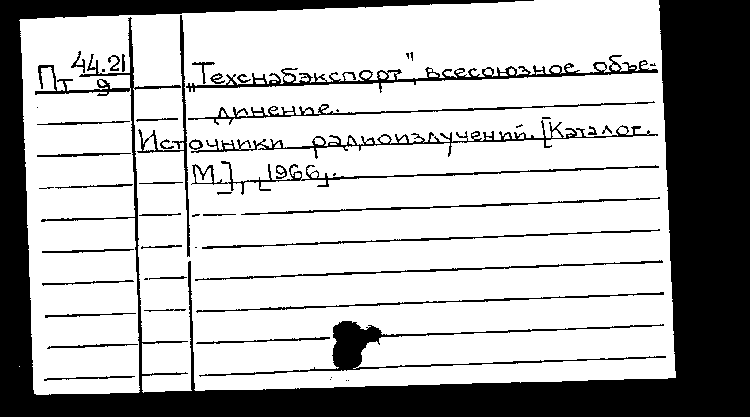 Пт 44.21
9
„Техснабэкспорт", всесоюзное объе-
динение.
Источники радиоизлучений. [Каталог.
М.], [1966].